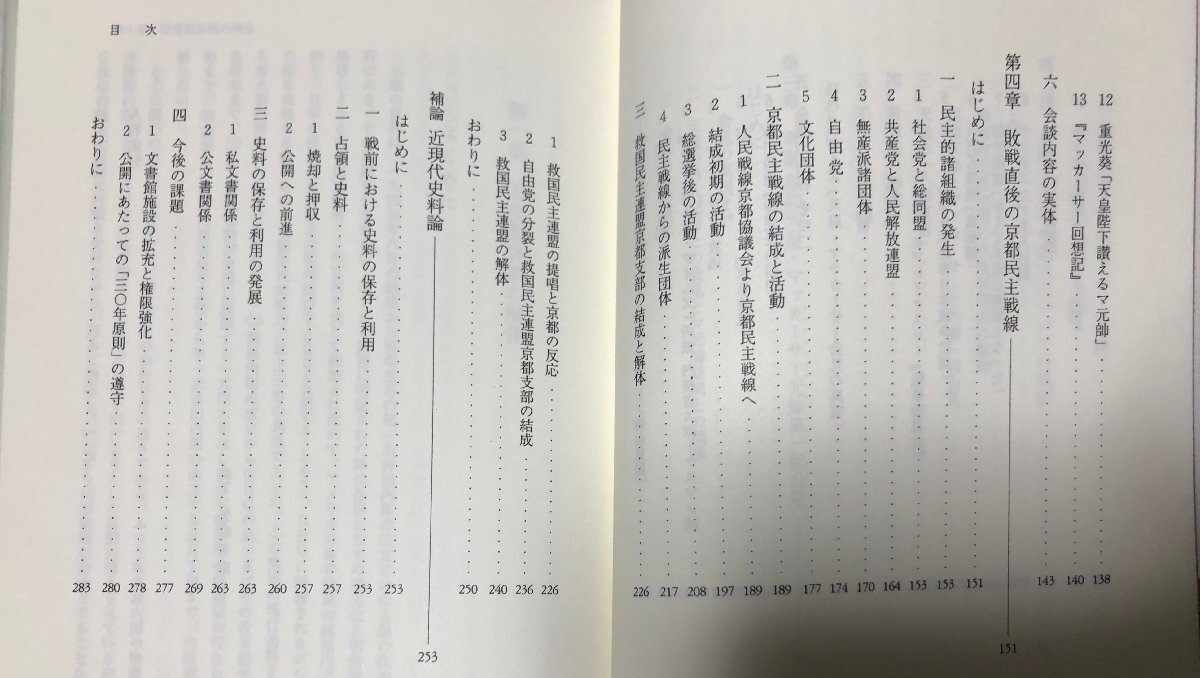 12 重光葵「天皇陛下讃えるマ元帥」 138
13 『マッカーサー回想記』 140
六 会談内容の実体 143
第四章 敗戦直後の京都民主戦線 151
はじめに 151
一 民主的諸組織の発生 153
1 社会党と総同盟 153
2 共産党と人民解放連盟 164
3 無産派諸団体 170
4 自由党 174
5 文化団体 177
二 京都民主戦線の結成と活動 189
1 人民戦線京都協議会より京都民主戦線へ 189
2 結成初期の活動 197
3 総選挙後の活動 208
4 民主戦線からの派生団体 217
三 救国民主連盟京都支部の結成と解体 226
目次
1 救国民主連盟の提唱と京都の反応 226
2 自由党の分裂と救国民主連盟京都支部の結成 236
3 救国民主連盟の解体 240
おわりに 250
補論 近現代史料論 253
はじめに 253
一 戦前における史料の保存と利用 253
二 占領と史料 257
1 焼却と押収 257
2 公開への前進 260
三 史料の保存と利用の発展 263
1 私文書関係 263
2 公文書関係 269
四 今後の課題 277
1 文書館施設の拡充と権限強化 278
2 公開にあたっての「三〇年原則」の遵守 280
おわりに 283